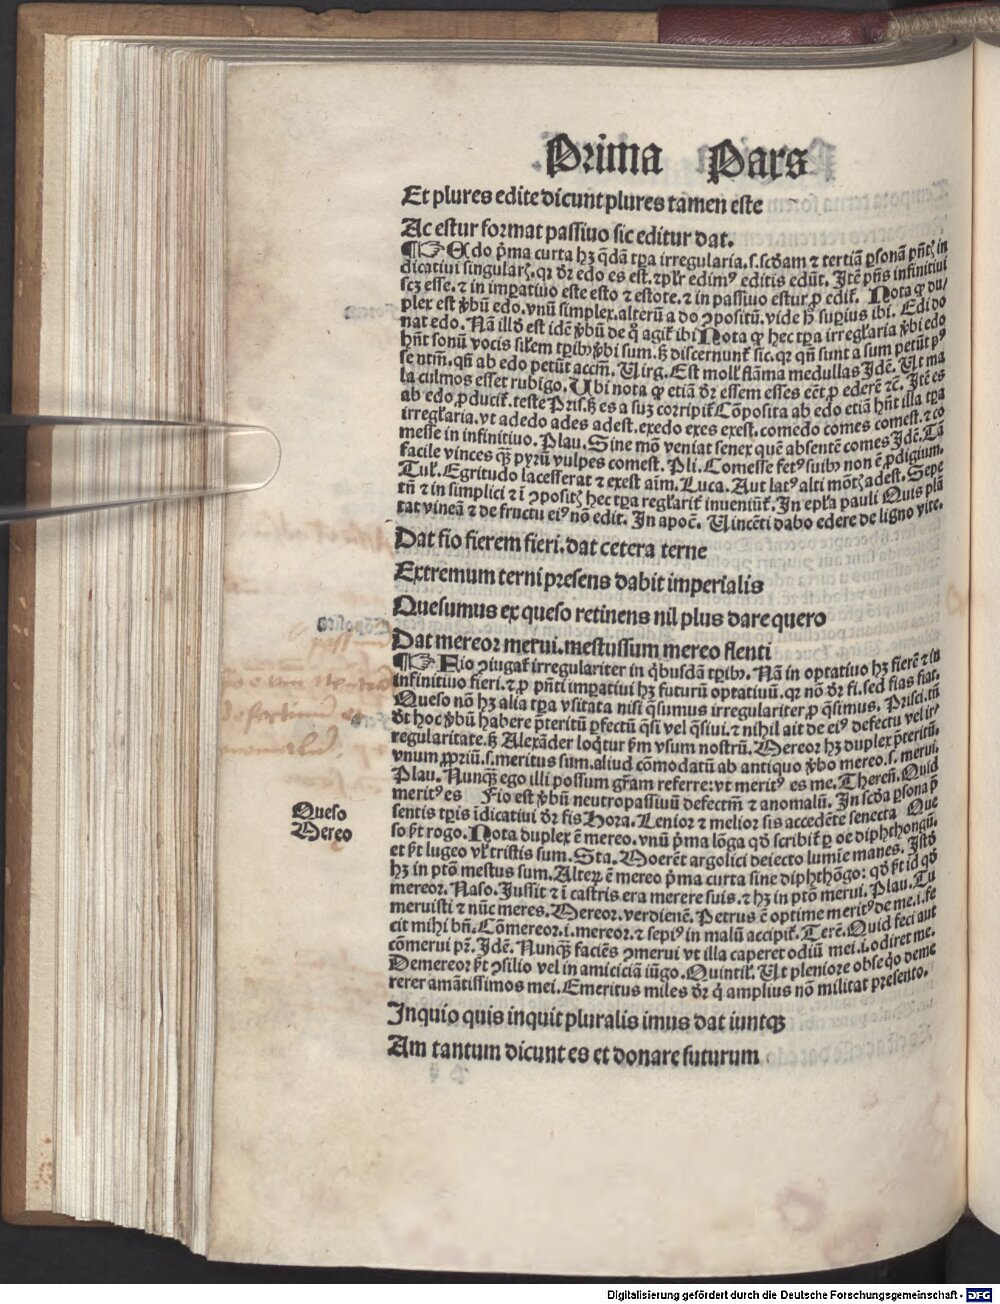 Prima Pars
Et plures edite dicunt plures tamen este
Ac estur format passiuo sic editur dat.
¶☞ Edo p̄ma curta hꝫ q̄dā tꝑa irregularia.s.scd̄am ⁊ tertiā ꝑsonā pn̄tꝭ in
dicatiui singularꝭ. qꝛ dr̄ edo es est. ⁊plr̄ edimꝰ editis edūt. Itē pn̄s infinitiui
scꝫ esse. ⁊ in imꝑatiuo este esto ⁊ estote. ⁊ in passiuo estur ꝓ edit᷑. Nota ꝙ du/
plex est v̄bū edo. vnū simplex. alterū a do ꝯpositū. vide h̄ supius ibi. Edi do
nat edo. Nā illd̄ est idē v̄bū de q̄ agit᷑ ibi Nota ꝙ hec tꝑa irregl̄aria v̄bi edo
hn̄t sonū vocis sil̄em tꝑibꝫ v̄bi sum. sꝫ discernunt᷑ sic. qꝛ qn̄ sunt a sum petūt pꝰ
se ntm̄. qn̄ ab edo petūt accm̄. Uirg. Est moll᷑ flāma medullas Idē. Ut ma
la culmos esset rubigo. Ubi nota ꝙ etiā dr̄ essem esses eēt ꝓ ederē ⁊c. Itē es
ab edo ꝓducit᷑. teste Pris. sꝫ es a suꝫ corripit᷑ Cōposita ab edo etiā hn̄t illa tꝑa
irregl̄aria. vt adedo ades adest. exedo exes exest. comedo comes comest. ⁊ co
messe in infinitiuo. Plau. Sine mō veniat senex quē absentē comes Idē. Tā
facile vinces qꝫ pyrū vulpes comest. Pli. Comesse fetꝰ suibꝫ non ē ꝓdigium.
Tul᷑. Egritudo lacesserat ⁊ exest aīm. Luca. Aut latꝰ alti mōtꝭ adest. Sepe
tn̄ ⁊ in simplici ⁊ ī ꝯpositꝭ hec tꝑa regl̄arit᷑ inueniūt᷑. In epl̄a pauli Quis plā
tat vineā ⁊ de fructu eiꝰ nō edit. In apoc̄. Uincēti dabo edere de ligno vite.
Dat fio fierem fieri. dat cetera terne
Extremum terni presens dabit imperialis
Quesumus ex queso retinens nil plus dare quero
Dat mereor merui. mestussum mereo flenti
¶☞ Fio ꝯiugat᷑ irregulariter in qͥbusdā tꝑibꝫ. Nā in optatiuo hꝫ fierē ⁊ in
infinitiuo fieri. ⁊ ꝓ pn̄ti imꝑatiui hꝫ futurū optatiuū. qꝛ nō dr̄ fi. sed fias fiat.
Queso nō hꝫ alia tꝑa vsitata nisi q̄sumus irregulariter ꝓ q̄simus. Prisci. tn̄
dt̄ hoc v̄bū habere p̄teritū ꝑfectū q̄si vel q̄siui. ⁊ nihil ait de eiꝰ defectu vel ir/
regularitate. sꝫ Alexāder loqͥtur ẜm vsum nostrū. Mereor hꝫ duplex p̄teritū.
vnum ꝓpriū. s. meritus sum. aliud cōmodatū ab antiquo v̄bo mereo. s. merui.
Plau. Nunqꝫ ego illi possum gr̄am referre: vt meritꝰ es me. Theren̄. Quid
meritꝰ es Fio est v̄bū neutropassiuū defectm̄ ⁊ anomalū. In scd̄a ꝑsona p̄
sentis tꝑis īdicatiui dr̄ fis Hora. Lenior ⁊ melior sis accedēte senecta Que
so p̄t rogo. Nota duplex ē mereo. vnū p̄ma lōga qd̄ scribit᷑ ꝑ oe diphthongū.
et p̄t lugeo vl᷑ tristis sum. Sta. Moerēt argolici deiecto lumīe manes. Istd̄
hꝫ in ptō mestus sum. Alteꝝ ē mereo p̄ma curta sine diphthōgo: qd̄ p̄t id qd̄
mereor. Naso. Jussit ⁊ ī castris era merere suis. ⁊ hꝫ in ptō merui. Plau. Tu
meruisti ⁊ nūc meres. Mereor. verdienē. Petrus ē optime meritꝰ de me. i. fe
cit mihi bn̄. Cōmereor. i. mereor. ⁊ sepiꝰ in malū accipit᷑. Terē. Quid feci aut
cōmerui pr̄. Idē. Nunqꝫ faciēs ꝯmerui vt illa caperet odiū mei. i. odiret me.
Demereor p̄t ꝯsilio vel in amiciciā iūgo. Quintil᷑. Ut pleniore obseqͦo deme
rerer amātissimos mei. Emeritus miles dr̄ qͥ amplius nō militat presento.
Queso
Mereo
Inquio quis inquit pluralis imus dat iuntqꝫ
Am tantum dicunt es et donare futurum
Digitalisierung gefördert durch die Deutsche Forschungsgemeinschaft - DFG